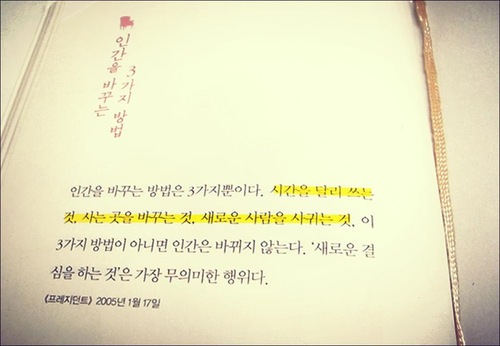 인간을 바꾸는
3가지 방법
인간을 바꾸는 방법은 3가지뿐이다. 시간을 달리 쓰는
것, 사는 곳을 바꾸는 것, 새로운 사람을 사귀는 것, 이
3가지 방법이 아니면 인간은 바뀌지 않는다. ‘새로운 결
심을 하는 것’은 가장 무의미한 행위다.
《프레지던트》 2005년 1월 17일